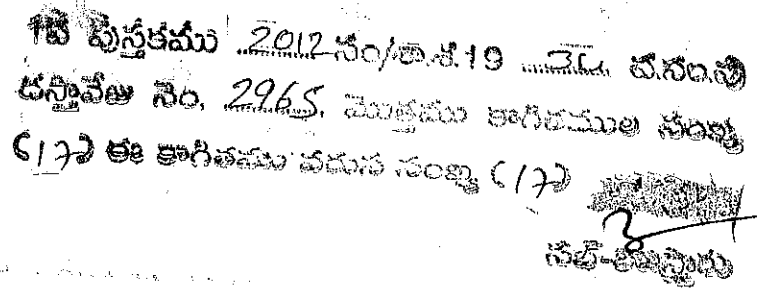 1వ పుస్తకము 2012 నం/శా.శ.19 34 వ.సం.పు
దస్తావేజు నెం. 2965. మొత్తము కాగితముల సంఖ్య
(17) ఈ కాగితము వరుస సంఖ్య (17)
సబ్-రిజిస్ట్రారు